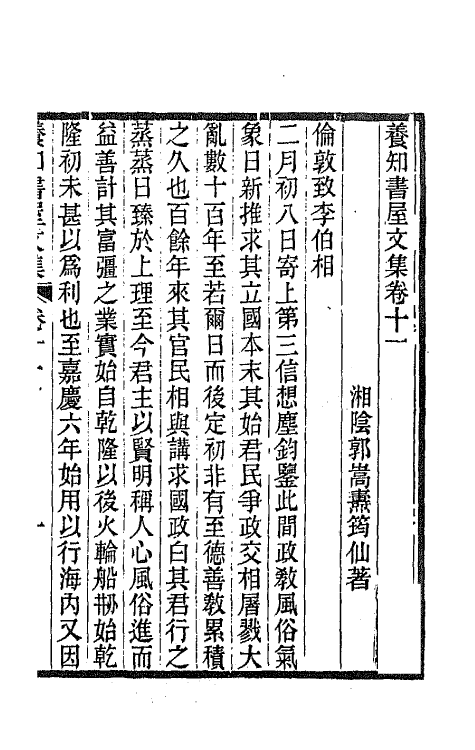 養知書屋文集卷十一
湘陰郭嵩燾筠仙著
倫敦致李伯相
二月初八日寄上第三信想塵鈞鑒此間政敎風俗氣
象日新推求其立國本末其始君民爭政交相屠戮大
亂數十百年至若爾日而後定初非有至德善敎累積
之久也百餘年來其官民相與講求國政白其君行之
蒸蒸日臻於上理至今君主以賢明稱人心風俗進而
益善計其富彊之業實始自乾隆以後火輪船刱始乾
隆初未甚以爲利也至嘉慶六年始用以行海內又因
養知書屋文集 卷十一 一